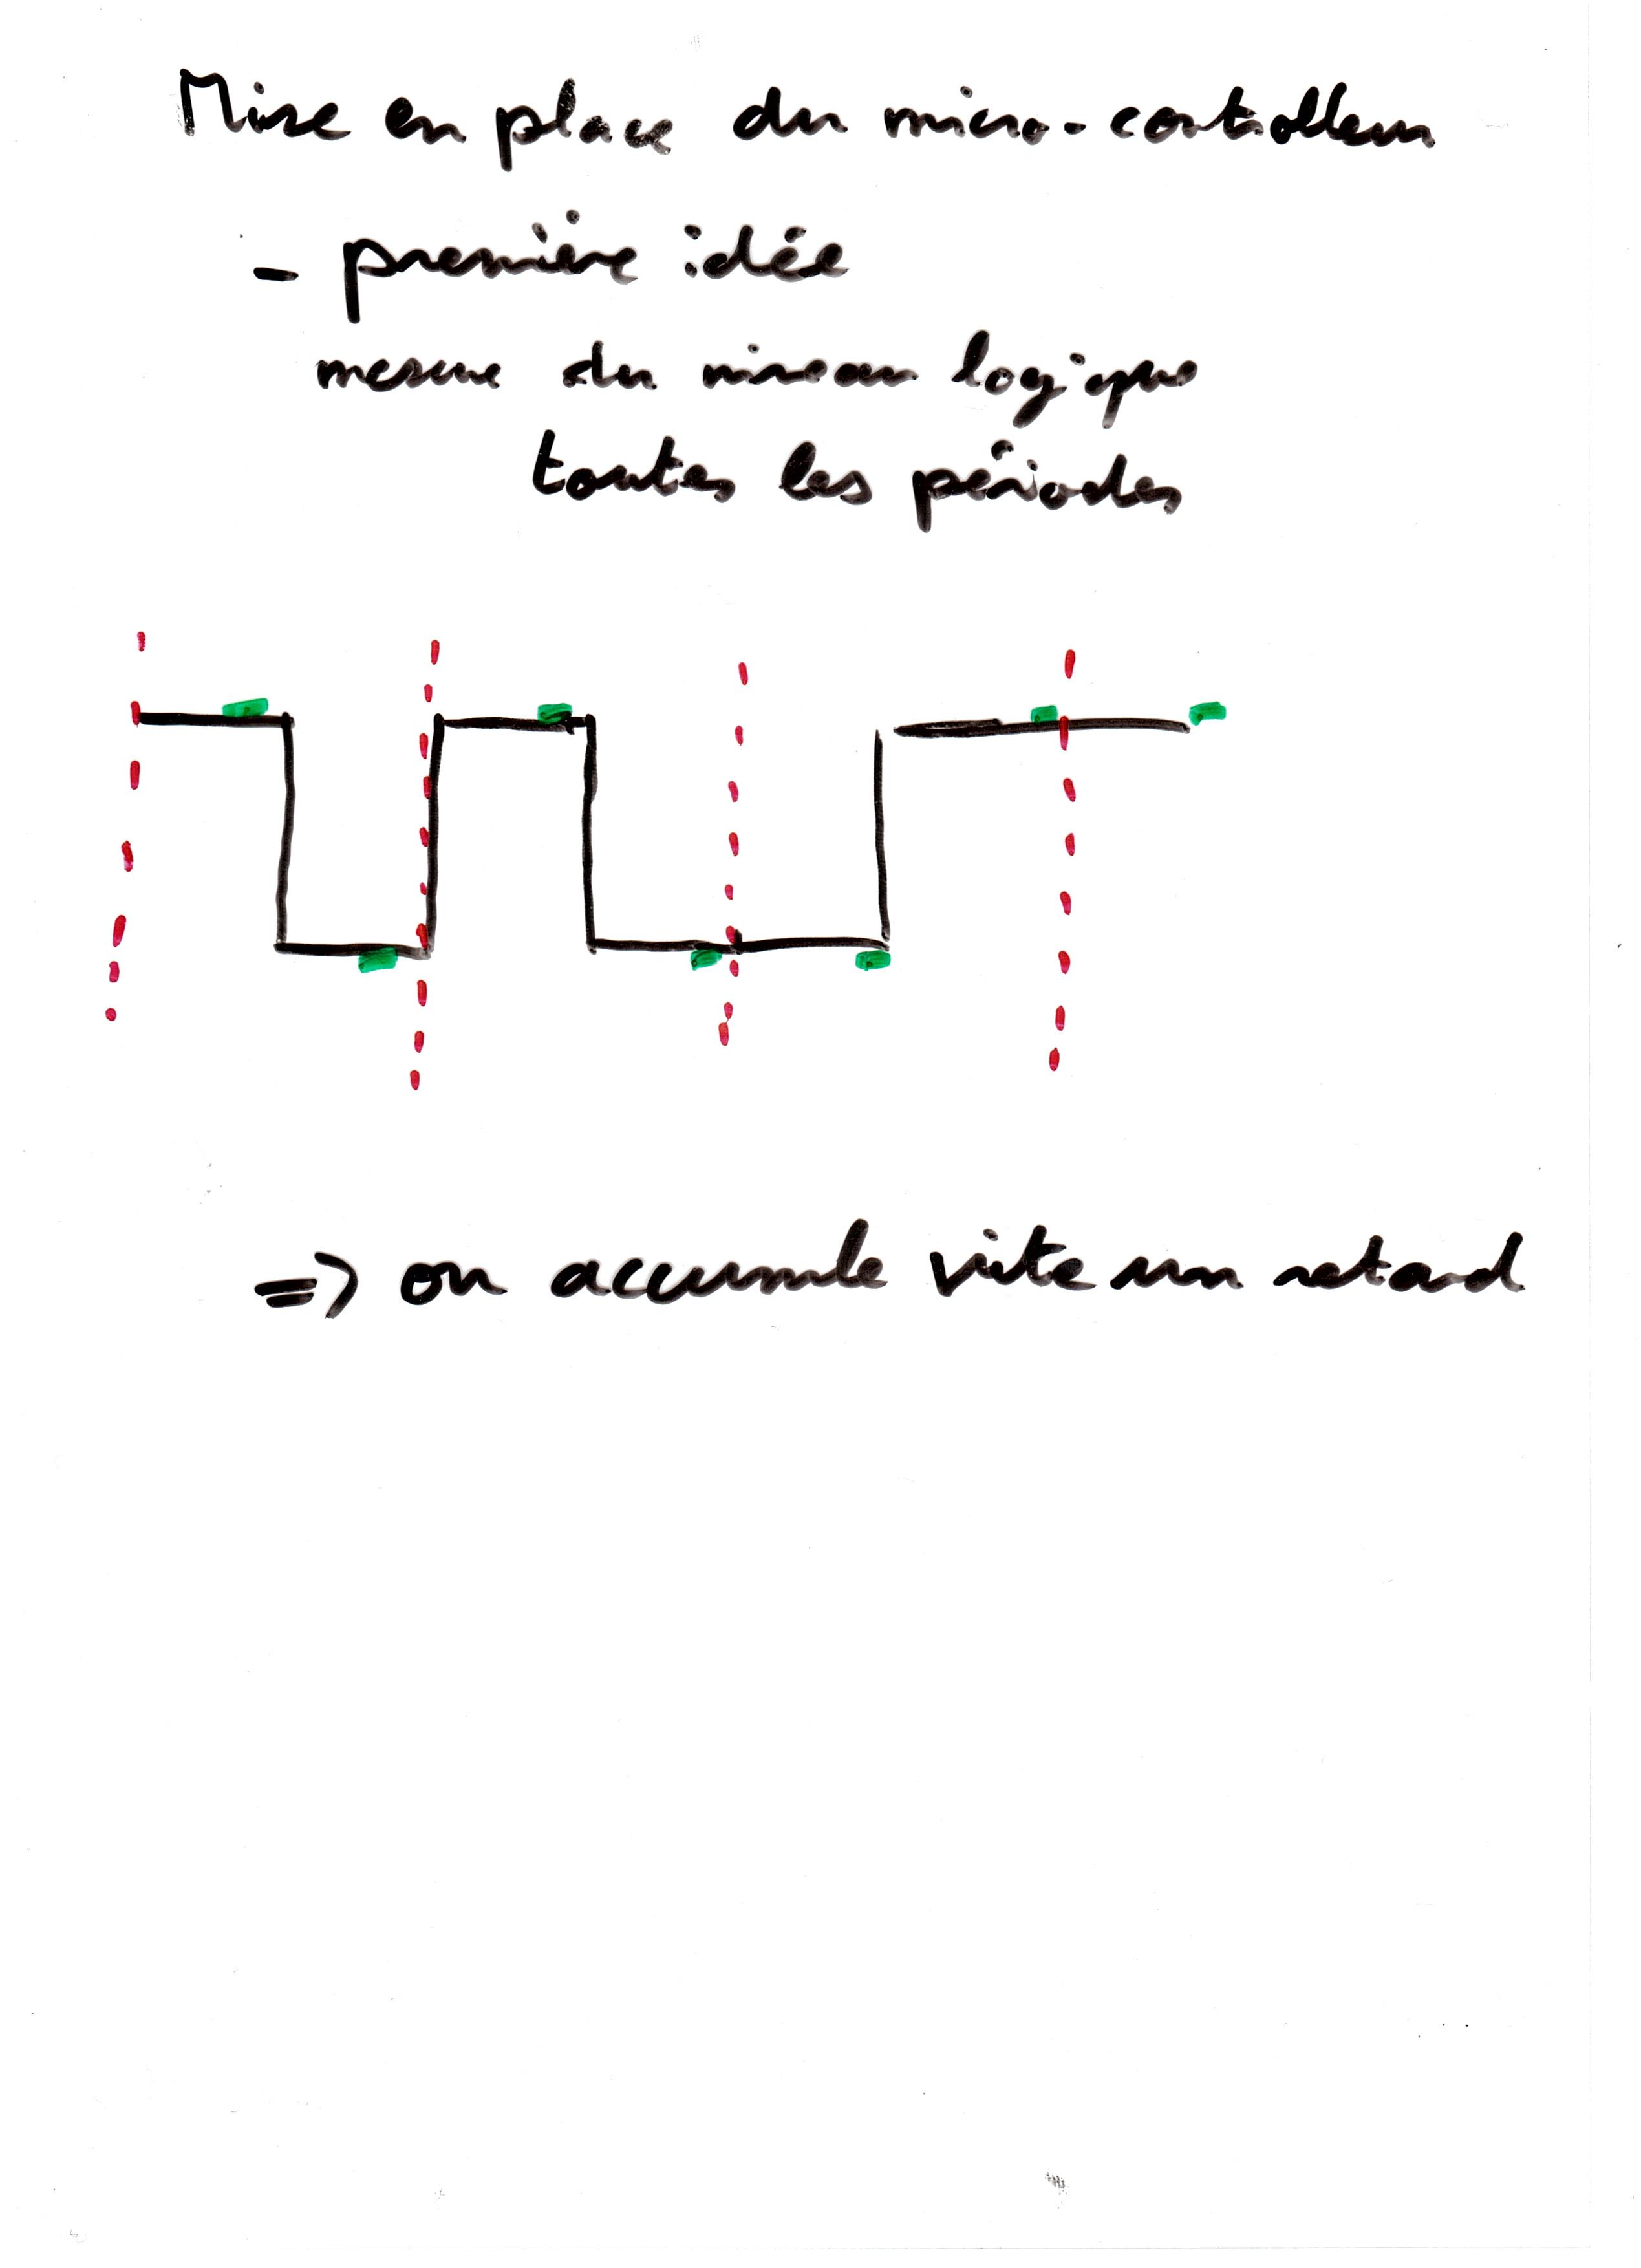 Mise en place du micro-controlleur
- première idée
mesure du niveau logique
toutes les périodes
=> on accumule vite un retard